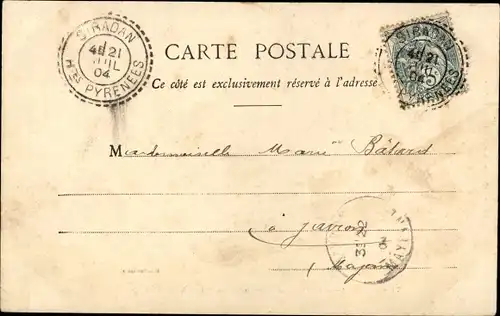 SIRADAN
4E 21
JUIL
04
Htes PYRÉNÉES
CARTE POSTALE
Ce côté est exclusivement réservé à l'adresse
SIRADAN
4E 21
04
PYRÉNÉES
Mademoiselle Marie Bâtard
à Javron
Mayenne
22
04
MAY